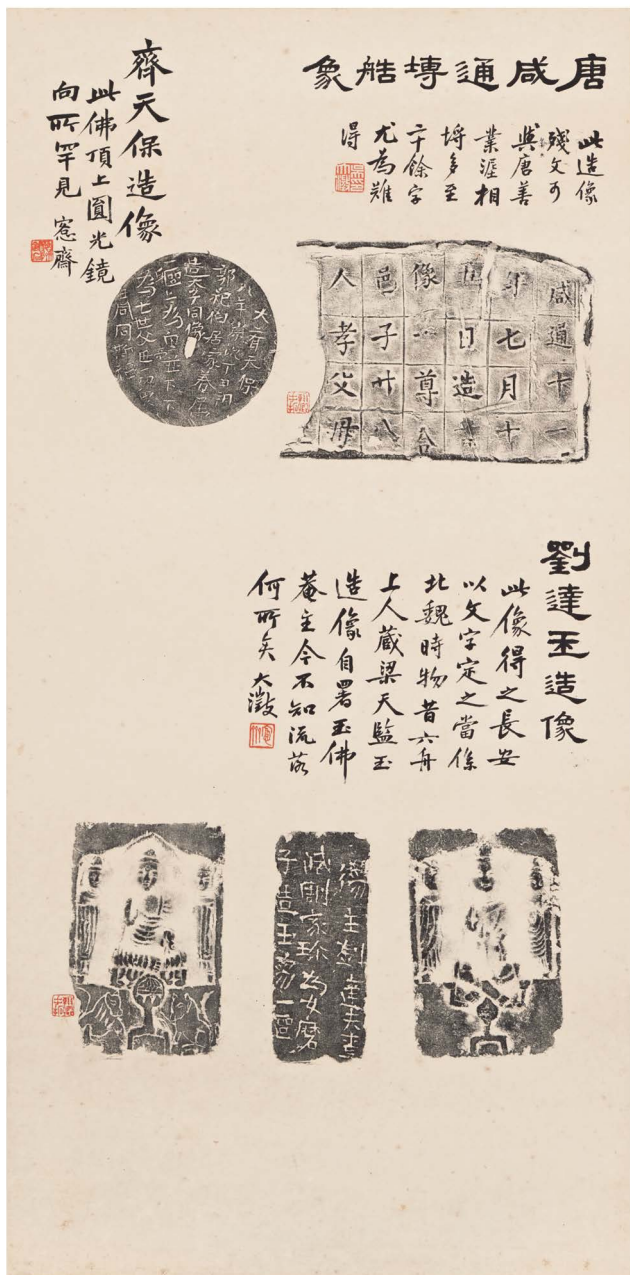 唐咸通塼艁象
此造像
殘文可
與唐善
業埿相
埒多至
餘字
尤為難
得
咸通十一
年七月十
日造
像一尊合
邑子廾八
人孝父母
齊天保造像
此佛頂上圓光鏡
向所罕見 愙齋
大齊天保
八年
造太子同像
為七世父母
劉達玉造像
此像得之長安
以文字定之當係
北魏時物昔六舟
上人藏梁天監玉
造像自署玉佛
菴主今不知流落
何所矣 大澂
像主劉達夫妻
減割家珍為女磨
子造玉像一區